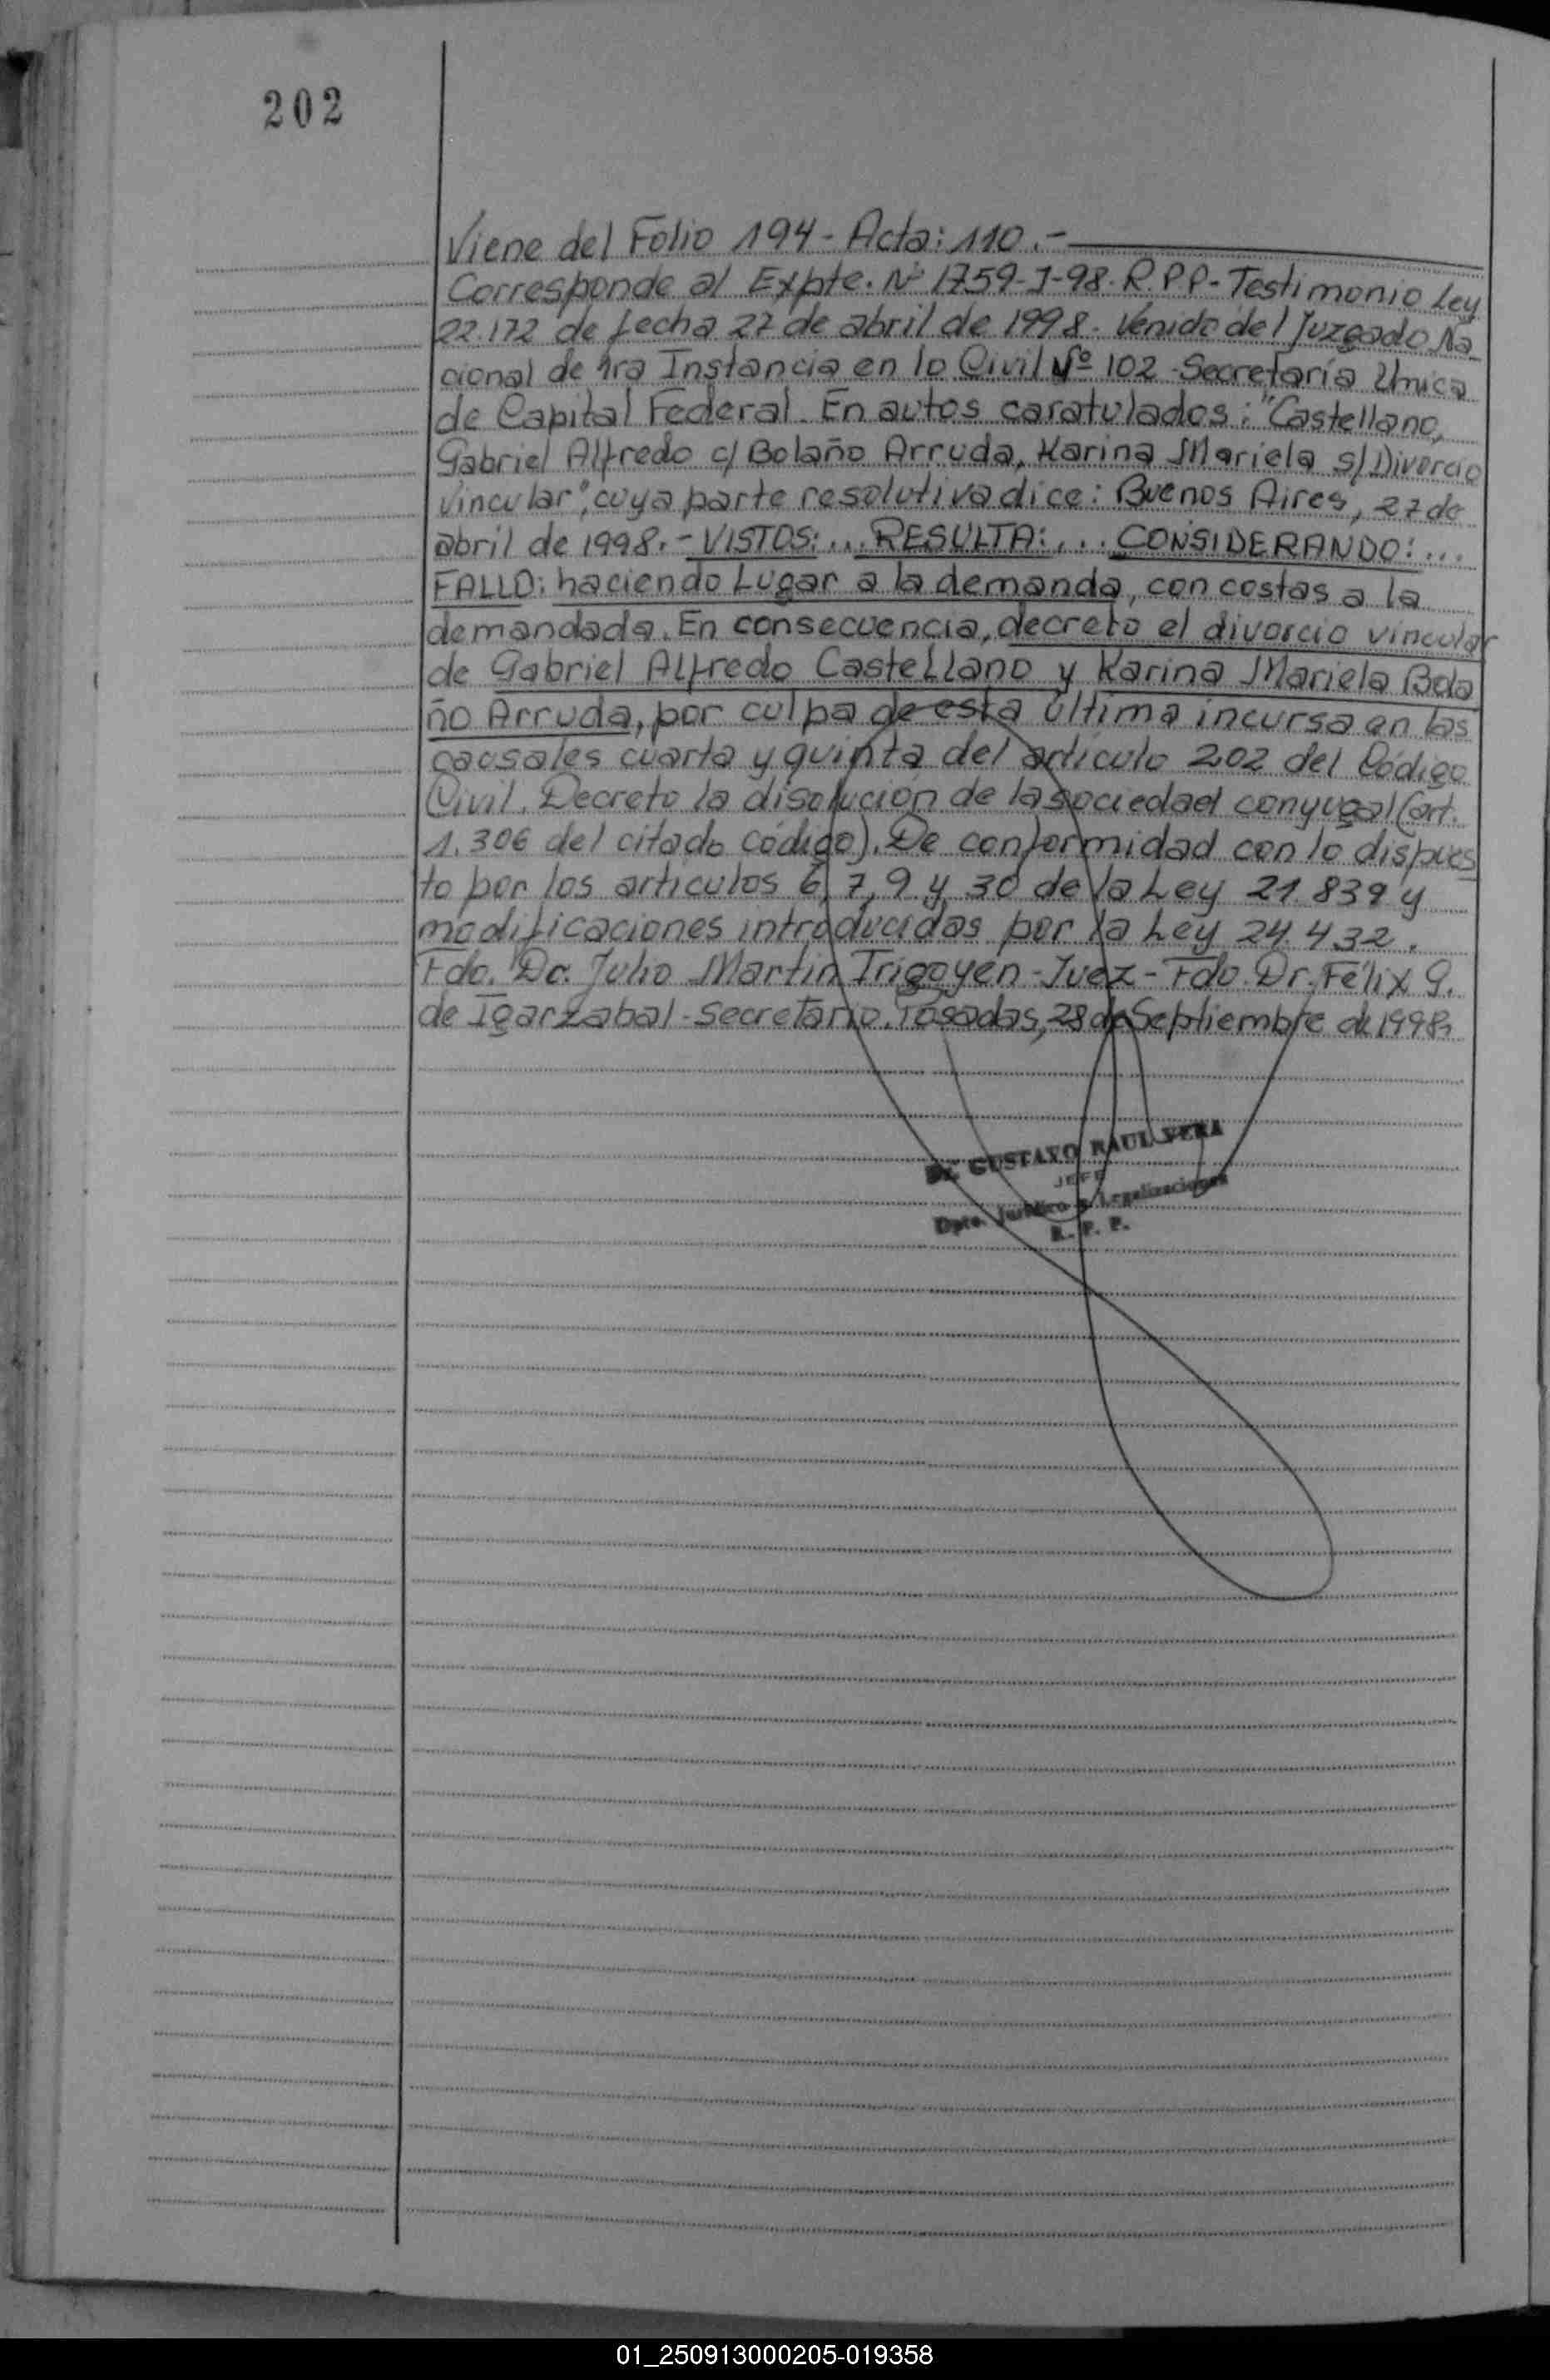 202
Viene del Folio 194 - Acta: 110.-
Corresponde al Expte. Nº 1759-J-98. R.P.P.- Testimonio Ley
22.172 de fecha 27 de abril de 1998. Venido del Juzgado Na
cional de 1ra Instancia en lo Civil Nº 102 - Secretaria Unica
de Capital Federal. En autos caratulados: "Castellano,
Gabriel Alfredo c/ Bolaño Arruda, Karina Mariela s/ Divorcio
vincular", cuya parte resolutiva dice: Buenos Aires, 27 de
abril de 1998.- VISTOS:... RESULTA:,... CONSIDERANDO:...
FALLO: haciendo Lugar a la demanda, con costas a la
demandada. En consecuencia, decreto el divorcio vincular
de Gabriel Alfredo Castellano y Karina Mariela Bola
ño Arruda, por culpa de esta última incursa en las
causales cuarta y quinta del artículo 202 del Código
Civil. Decreto la disolución de la sociedad conyugal (art.
1.306 del citado código). De conformidad con lo dispues
to por los articulos 6, 7, 9 y 30 de la Ley 21.839 y
modificaciones introducidas por la Ley 24.432.
Fdo. Dr. Julio Martin Trigoyen - Juez - Fdo. Dr. Félix G.
de Igarzabal - Secretario. Posadas, 28 de Septiembre de 1998.
Dr. GUSTAVO RAUL VERA
JEFE
Dpto. Jurídico y Legalizaciones
R. P. P.
01_250913000205-019358